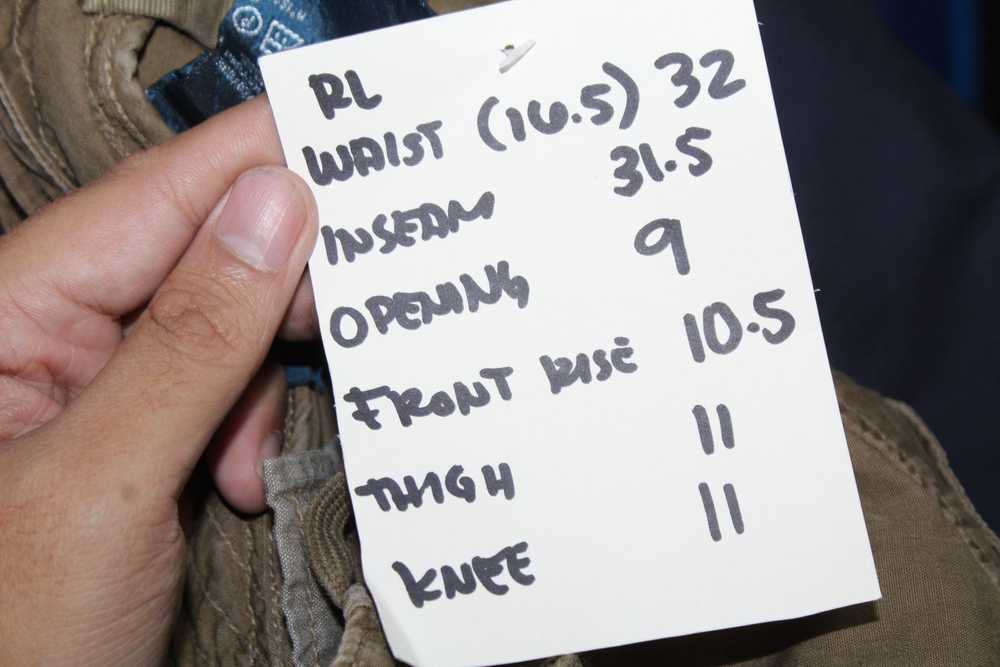 RL
WAIST (16.5) 32
INSEAM 31.5
OPENING 9
FRONT RISE 10.5
THIGH 11
KNEE 11